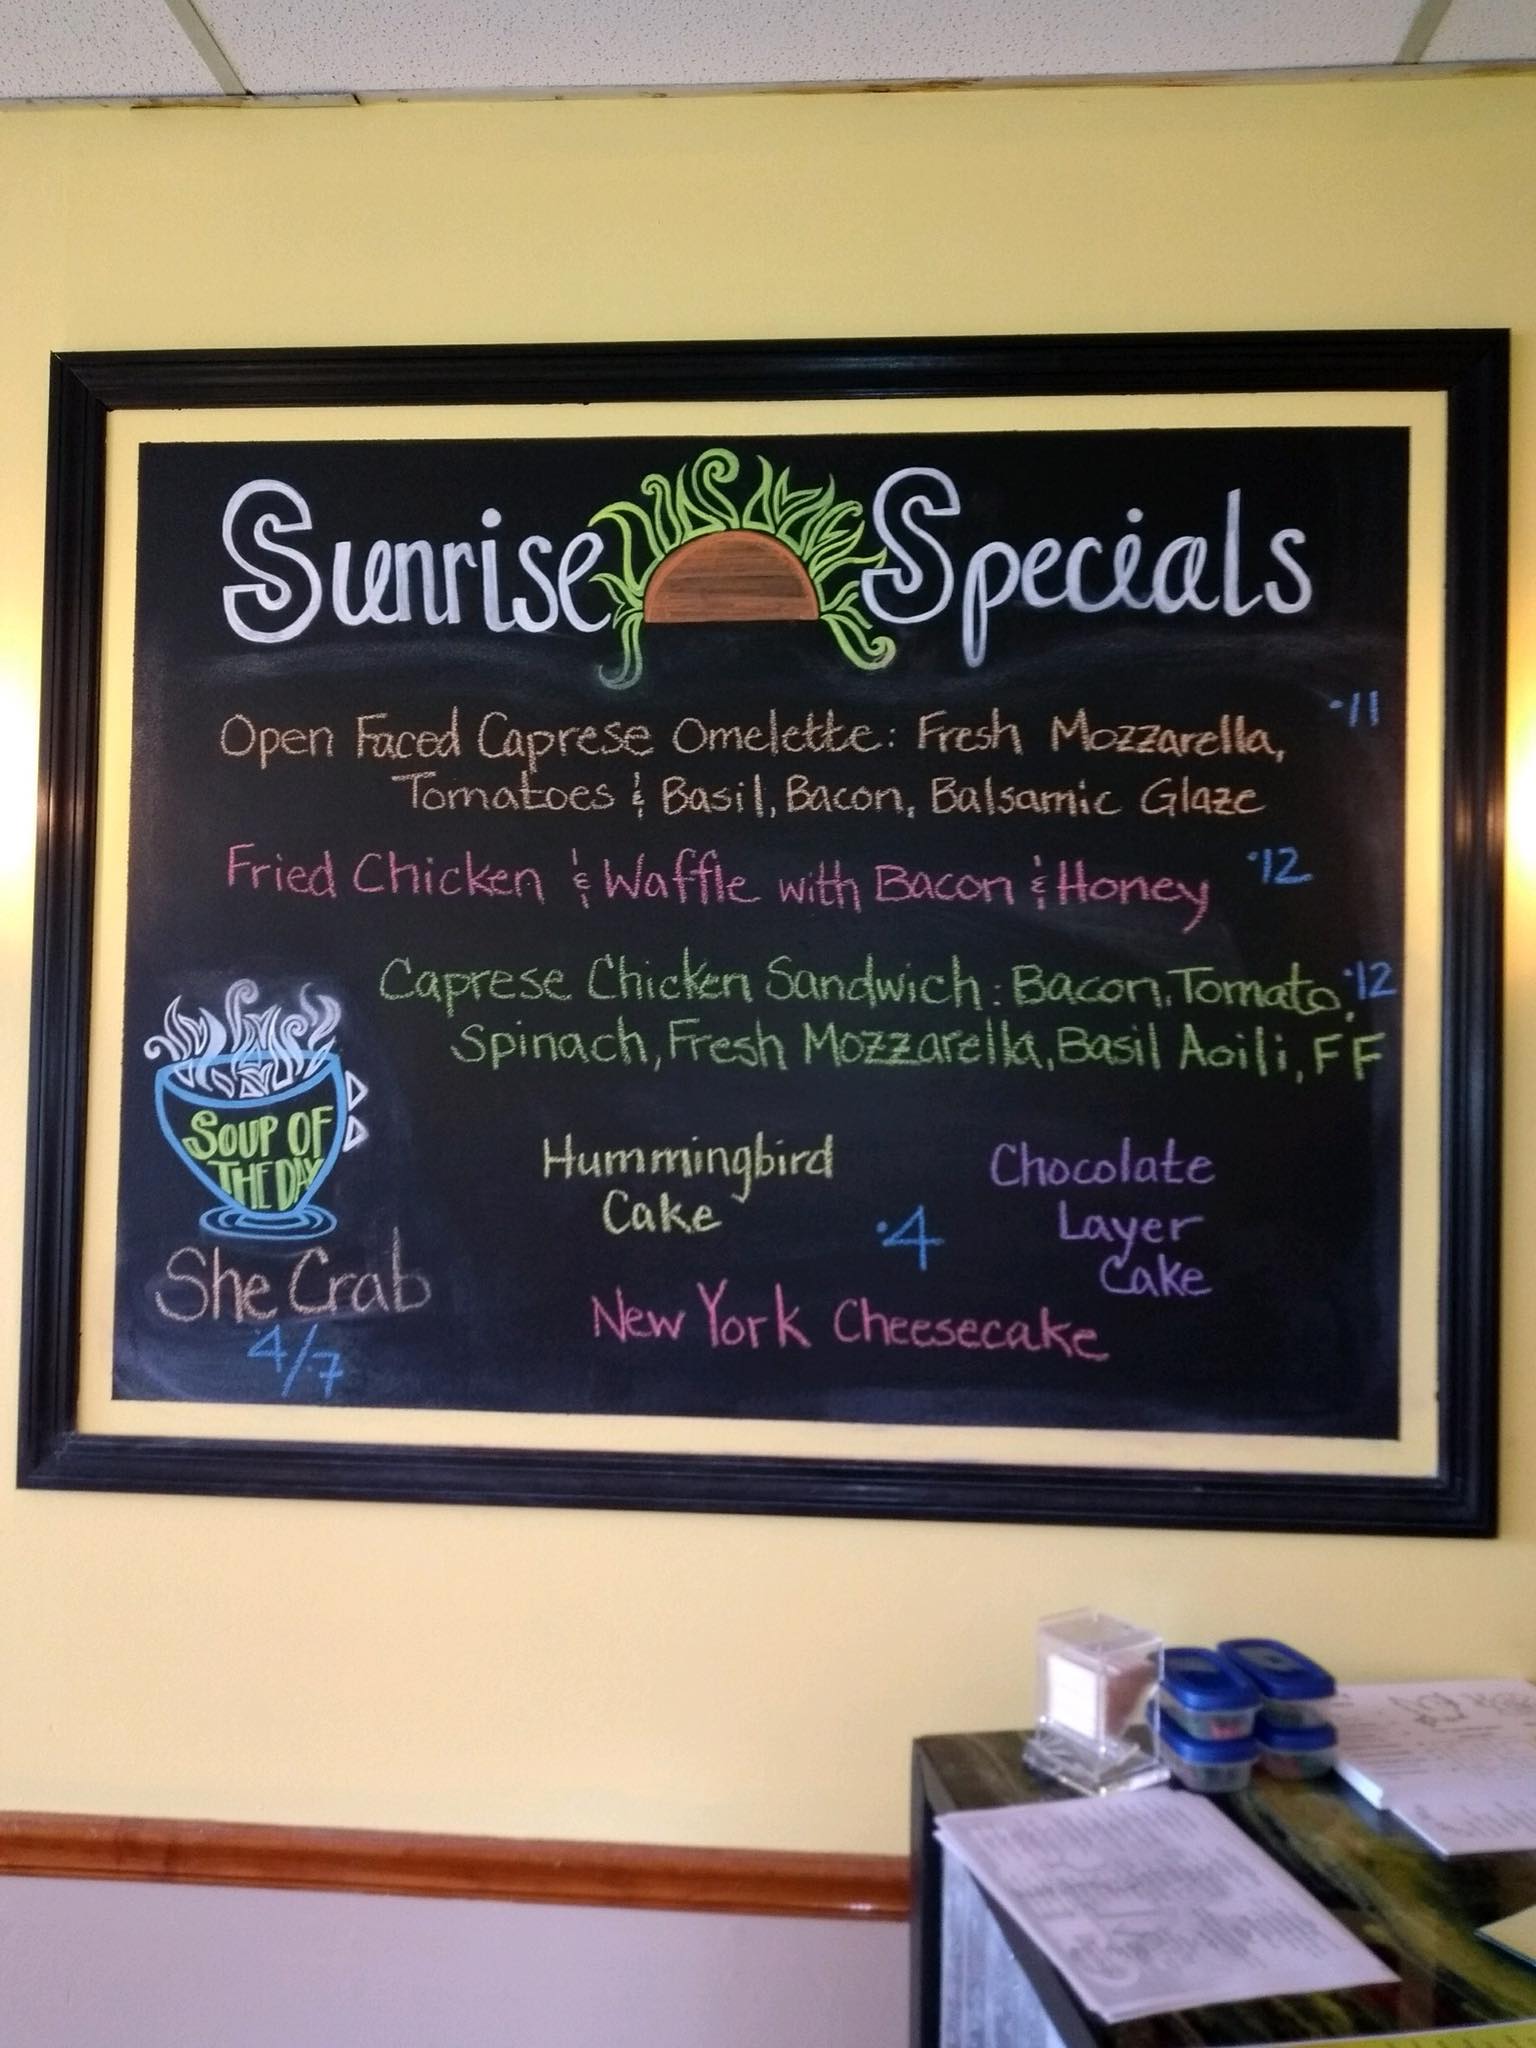 Sunrise Specials
Open Faced Caprese Omelette: Fresh Mozzarella, •11
Tomatoes & Basil, Bacon, Balsamic Glaze
Fried Chicken & Waffle with Bacon & Honey •12
Caprese Chicken Sandwich: Bacon, Tomato, •12
Spinach, Fresh Mozzarella, Basil Aoili, FF
SOUP OF
THE DAY
She Crab
4/7
Hummingbird
Cake
•4
Chocolate
Layer
Cake
New York Cheesecake